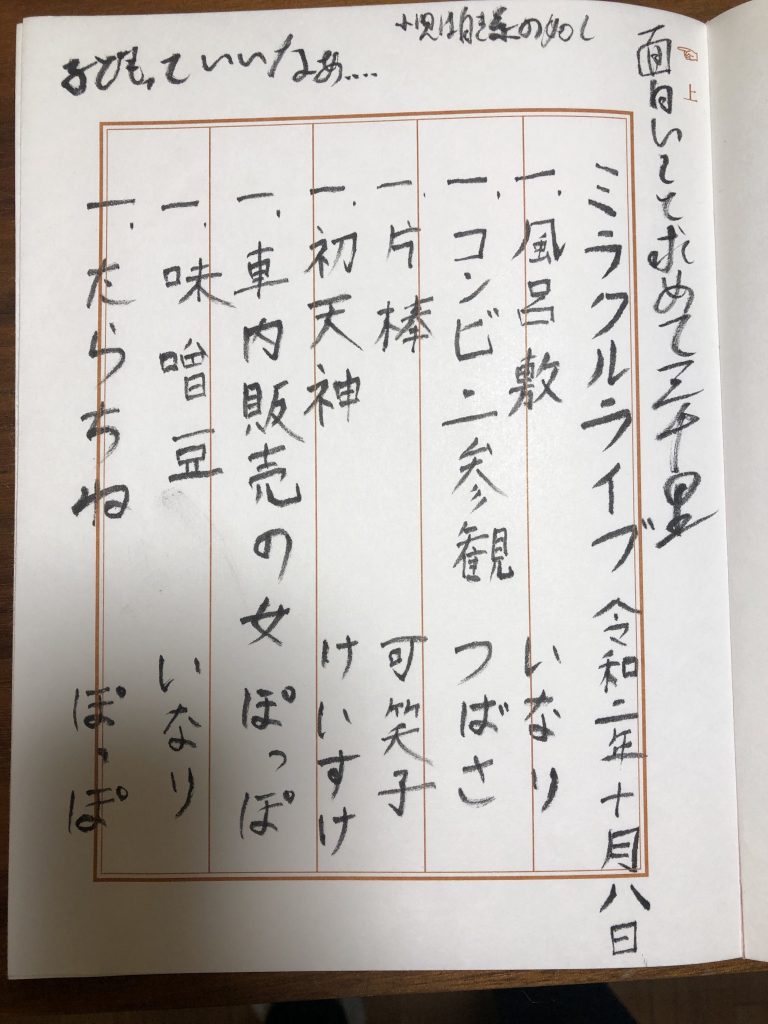 面白いしと求めて三千里
ミラクルライブ 令和二年十月八日
一、風呂敷 いなり
一、コンビニ参観 つばさ
一、片棒 可笑子
一、初天神 けいすけ
一、車内販売の女 ぽっぽ
一、味噌豆 いなり
一、たらちね ぽっぽ
小児は白き糸の如し
子どもっていいなぁ....